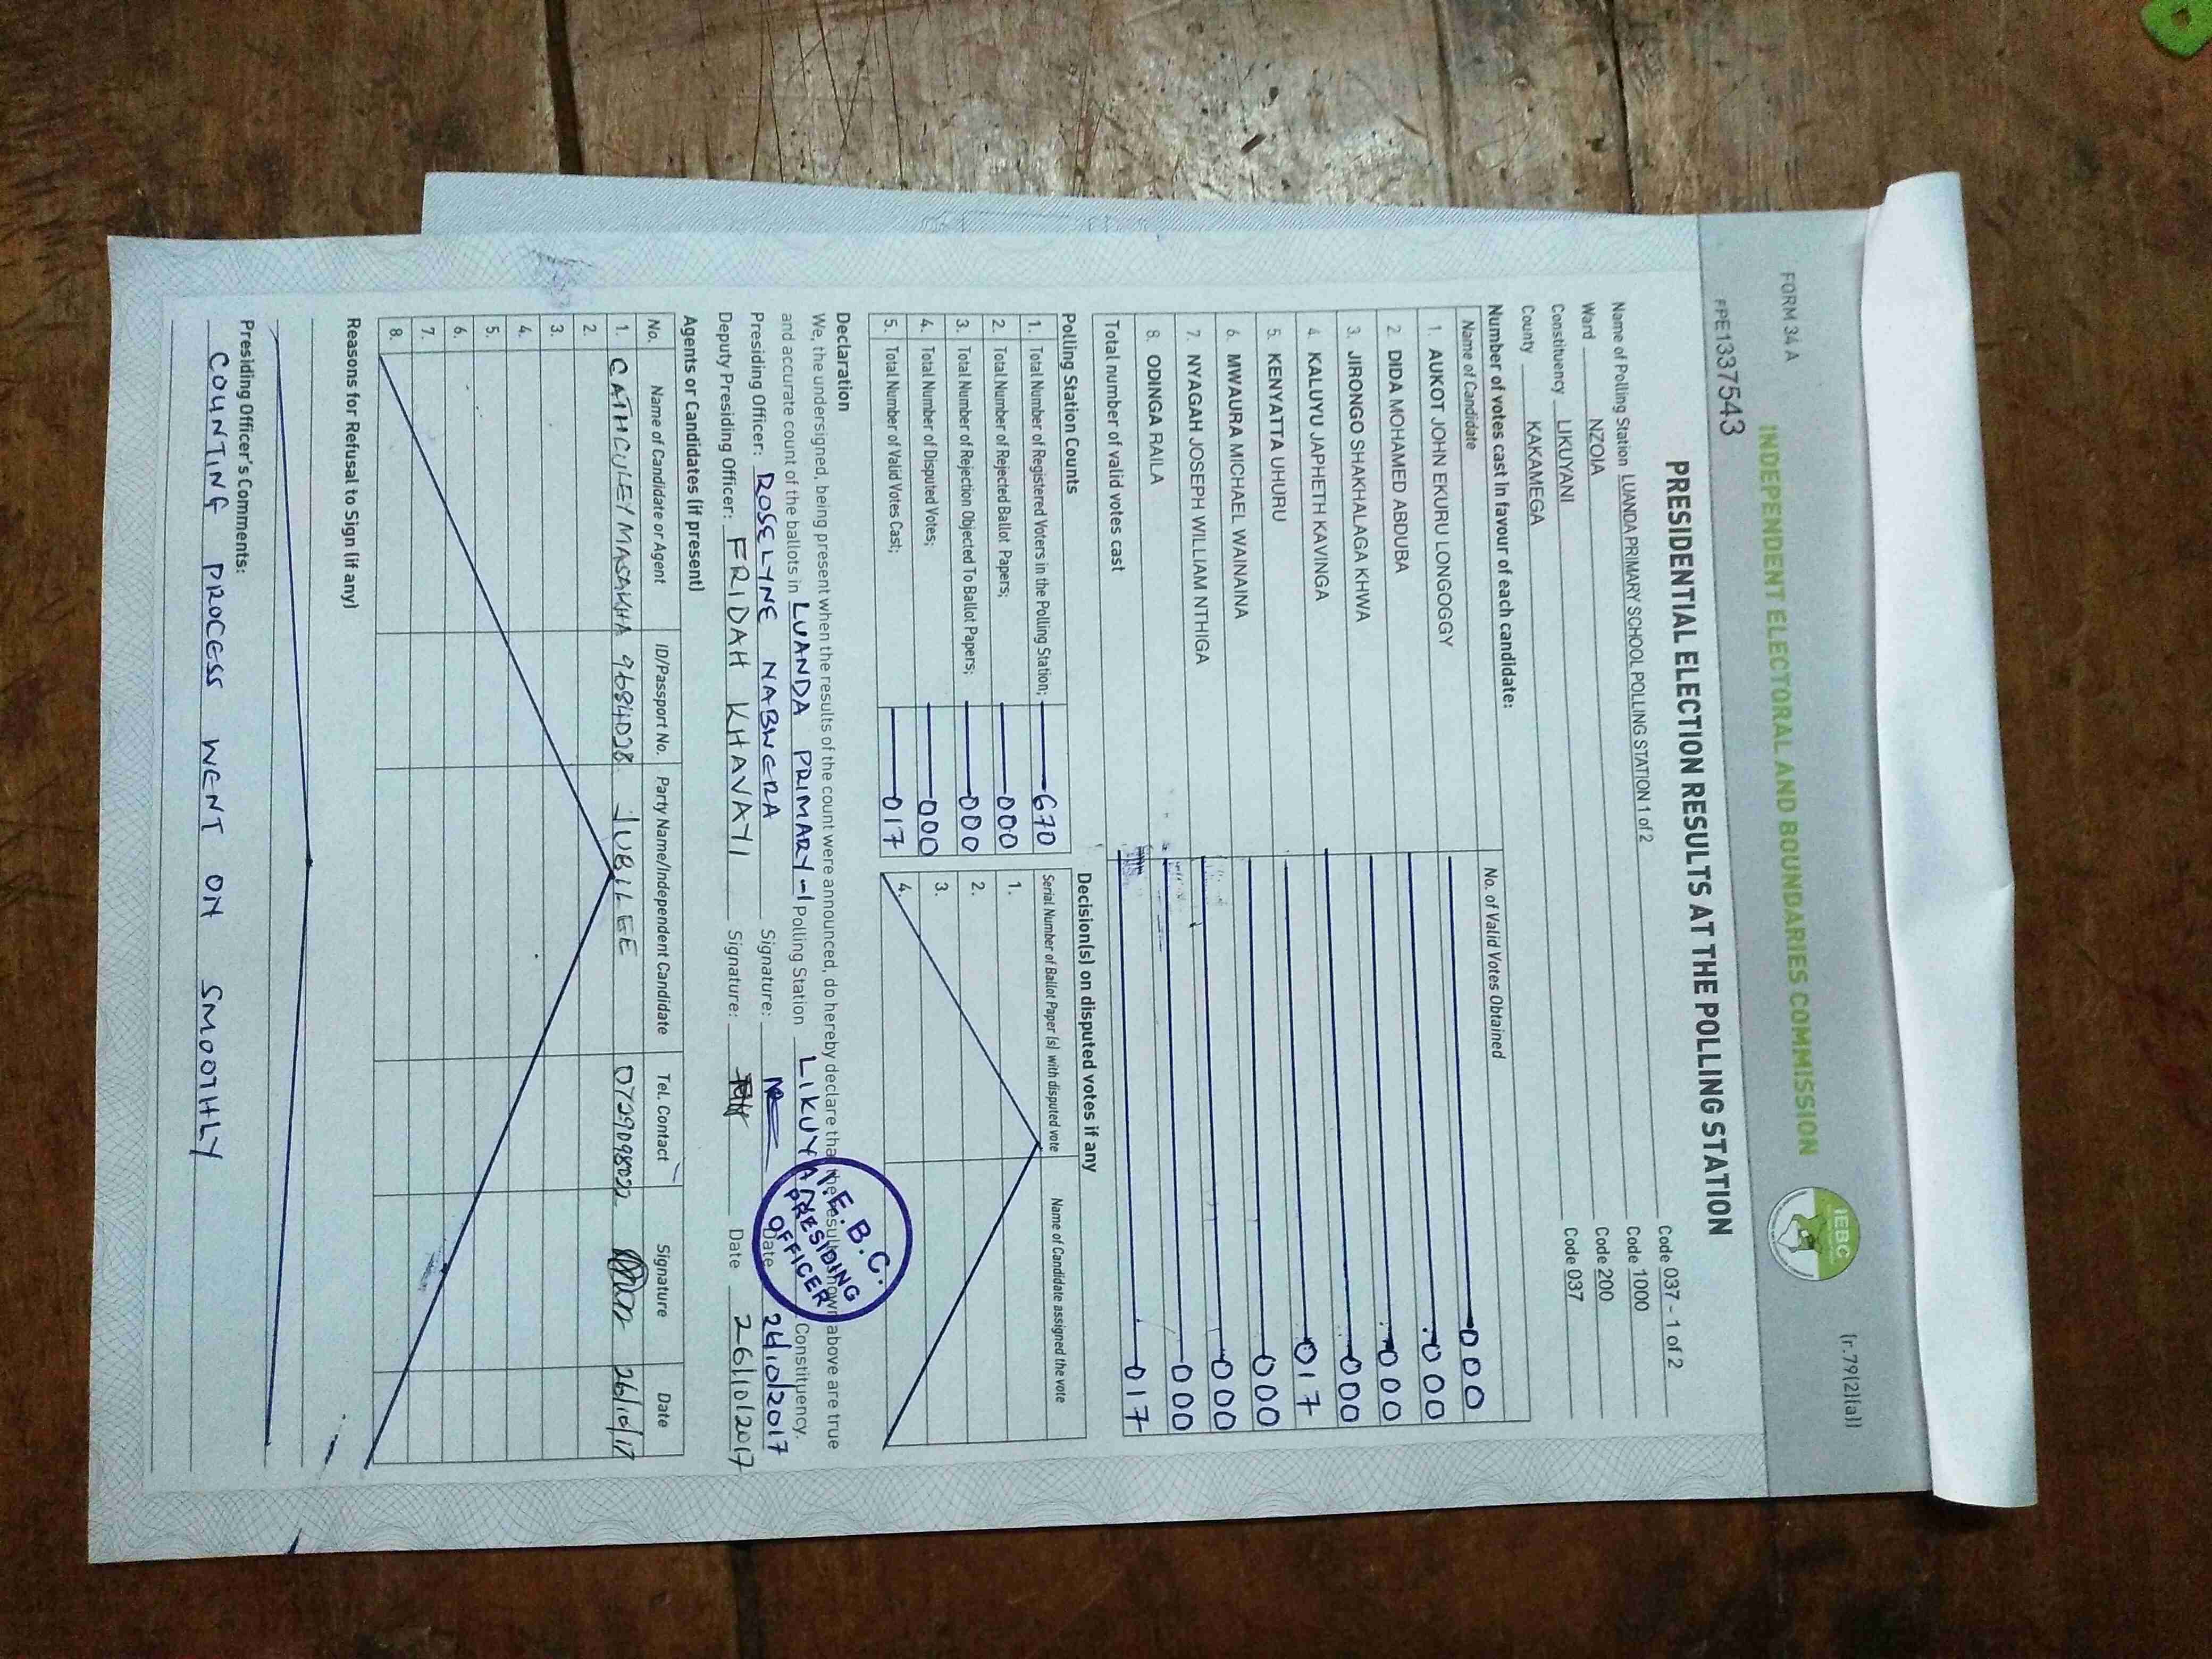 FORM 34 A
(r.79(2)(a))
INDEPENDENT ELECTORAL AND BOUNDARIES COMMISSION
IEBC
FPE1337543
PRESIDENTIAL ELECTION RESULTS AT THE POLLING STATION
Name of Polling Station LUANDA PRIMARY SCHOOL POLLING STATION 1 of 2 Code 037 - 1 of 2
Ward NZOIA Code 1000
Constituency LIKUYANI Code 200
County KAKAMEGA Code 037
Number of votes cast in favour of each candidate:
Name of Candidate No. of Valid Votes Obtained
1. AUKOT JOHN EKURU LONGOGGY 000
2. DIDA MOHAMED ABDUBA 000
3. JIRONGO SHAKHALAGA KHWA 000
4. KALUYU JAPHETH KAVINGA 000
5. KENYATTA UHURU 017
6. MWAURA MICHAEL WAINAINA 000
7. NYAGAH JOSEPH WILLIAM NTHIGA 000
8. ODINGA RAILA 000
Total number of valid votes cast 017
Polling Station Counts
1. Total Number of Registered Voters in the Polling Station; 670
2. Total Number of Rejected Ballot Papers; 000
3. Total Number of Rejection Objected To Ballot Papers; 000
4. Total Number of Disputed Votes; 000
5. Total Number of Valid Votes Cast; 017
Decision(s) on disputed votes if any
Serial Number of Ballot Paper (s) with disputed vote Name of Candidate assigned the vote
1.
2.
3.
4.
Declaration
We, the undersigned, being present when the results of the count were announced, do hereby declare that the results shown above are true
and accurate count of the ballots in LUANDA PRIMARY-1 Polling Station LIKUYANI Constituency.
Presiding Officer: ROSELYNE NABWERA Signature: Date 26/10/2017
Deputy Presiding Officer: FRIDAH KHAVAYI Signature: Date 26/10/2017
I.E.B.C.
PRESIDING
OFFICER
Agents or Candidates (if present)
No. Name of Candidate or Agent ID/Passport No. Party Name/Independent Candidate Tel. Contact Signature Date
1. MASAKHA 9684028 JUBILEE 26/10/17
2.
3.
4.
5.
6.
7.
8.
Reasons for Refusal to Sign (if any)
Presiding Officer's Comments:
COUNTING PROCESS WENT ON SMOOTHLY